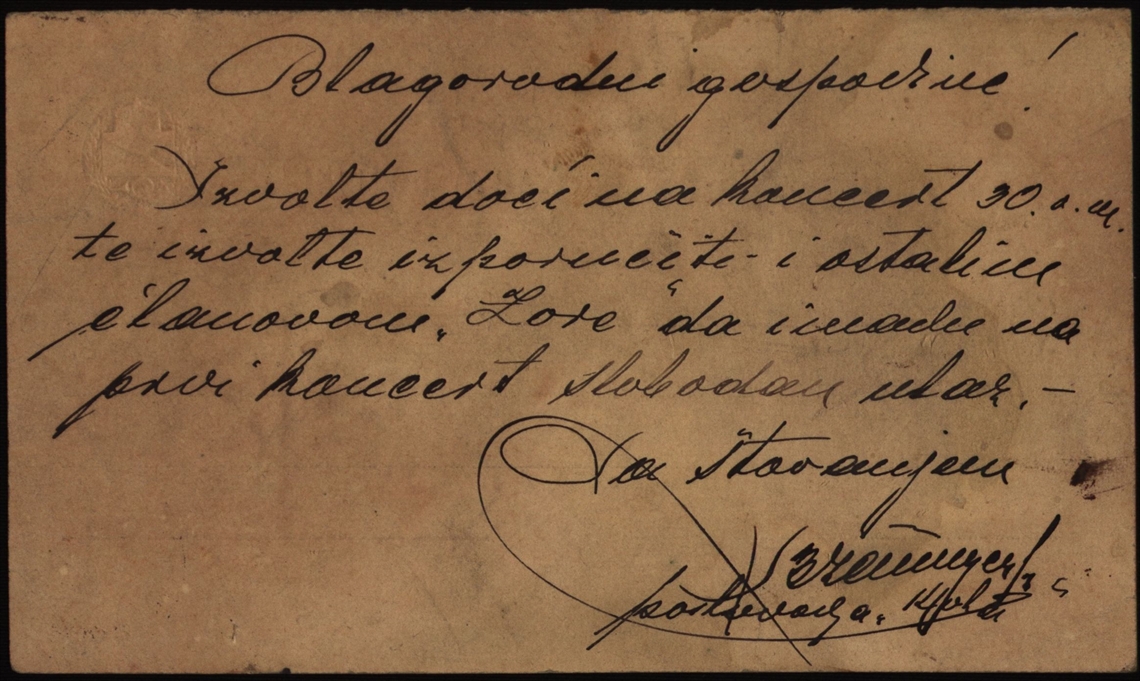 Blagorodni gospodine!
Izvolte doći na koncert 30. o. m.
te izvolte izporučiti i ostalim
članovom „Zore“ da imadu na
prvi koncert slobodan ulaz. –
Sa štovanjem
poslovodja „Kola“